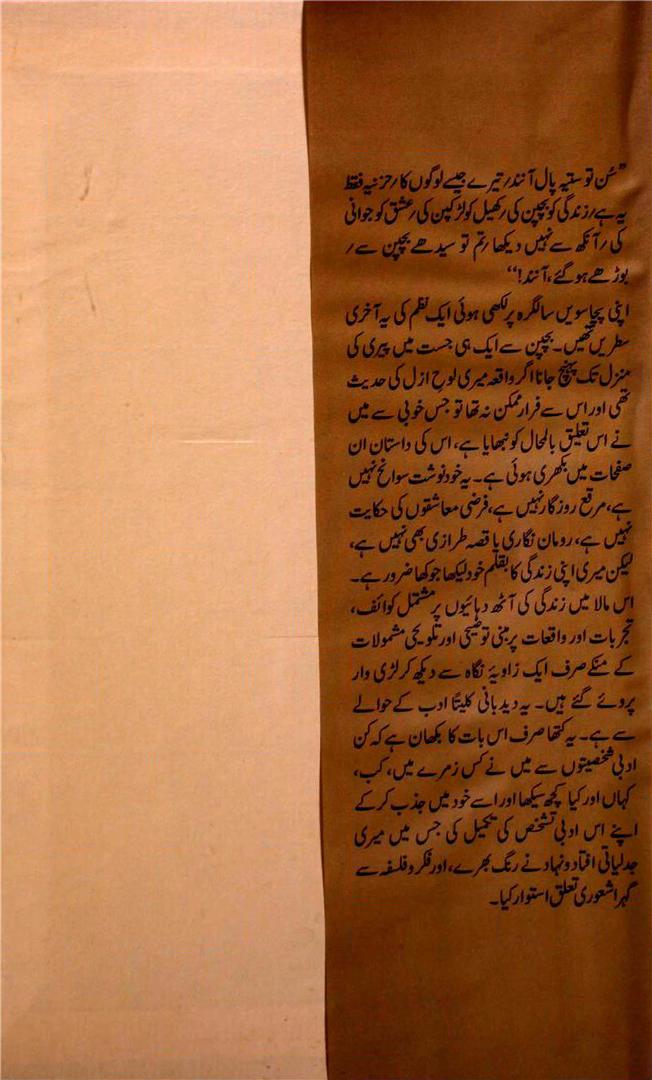 ”سُن تو ستیہ پال آنند؍ تیرے جیسے لوگوں کا؍ حزنیہ فقط
یہ ہے؍ زندگی کو بچپن کی؍ کھیل کو لڑکپن کی؍ عشق کو جوانی
کی؍ آنکھ سے نہیں دیکھا؍ تم تو سیدھے بچپن سے؍
بوڑھے ہو گئے، آنند!“
اپنی پچاسویں سالگرہ پر لکھی ہوئی ایک نظم کی یہ آخری
سطریں تھیں۔ بچپن سے ایک ہی جست میں پیری کی
منزل تک پہنچ جانا اگر واقعہ میری لوحِ ازل کی حدیث
تھی اور اس سے فرار ممکن نہ تھا تو جس خوبی سے میں
نے اس تعلیق بالمحال کو نبھایا ہے، اس کی داستان ان
صفحات میں بکھری ہوئی ہے۔ یہ خود نوشت سوانح نہیں
ہے، مرقع روزگار نہیں ہے، فرضی معاشقوں کی حکایت
نہیں ہے، رومان نگاری یا قصہ طرازی بھی نہیں ہے،
لیکن میری اپنی زندگی کا بقلم خود لیکھا جوکھا ضرور ہے۔
اس مالا میں زندگی کی آٹھ دہائیوں پر مشتمل کوائف،
تجربات اور واقعات پر مبنی توضیحی اور تلویحی مشمولات
کے منکے صرف ایک زاویۂ نگاہ سے دیکھ کر لڑی وار
پروئے گئے ہیں۔ یہ دیدبانی کلیتاً ادب کے حوالے
سے ہے۔ یہ کتھا صرف اس بات کا بکھان ہے کہ کن
ادبی شخصیتوں سے میں نے کس زمرے میں، کب،
کہاں اور کیا کچھ سیکھا اور اسے خود میں جذب کر کے
اپنے اس ادبی تشخص کی تکمیل کی جس میں میری
جدلیاتی افتاد و نہاد نے رنگ بھرے، اور فکر و فلسفہ سے
گہرا شعوری تعلق استوار کیا۔